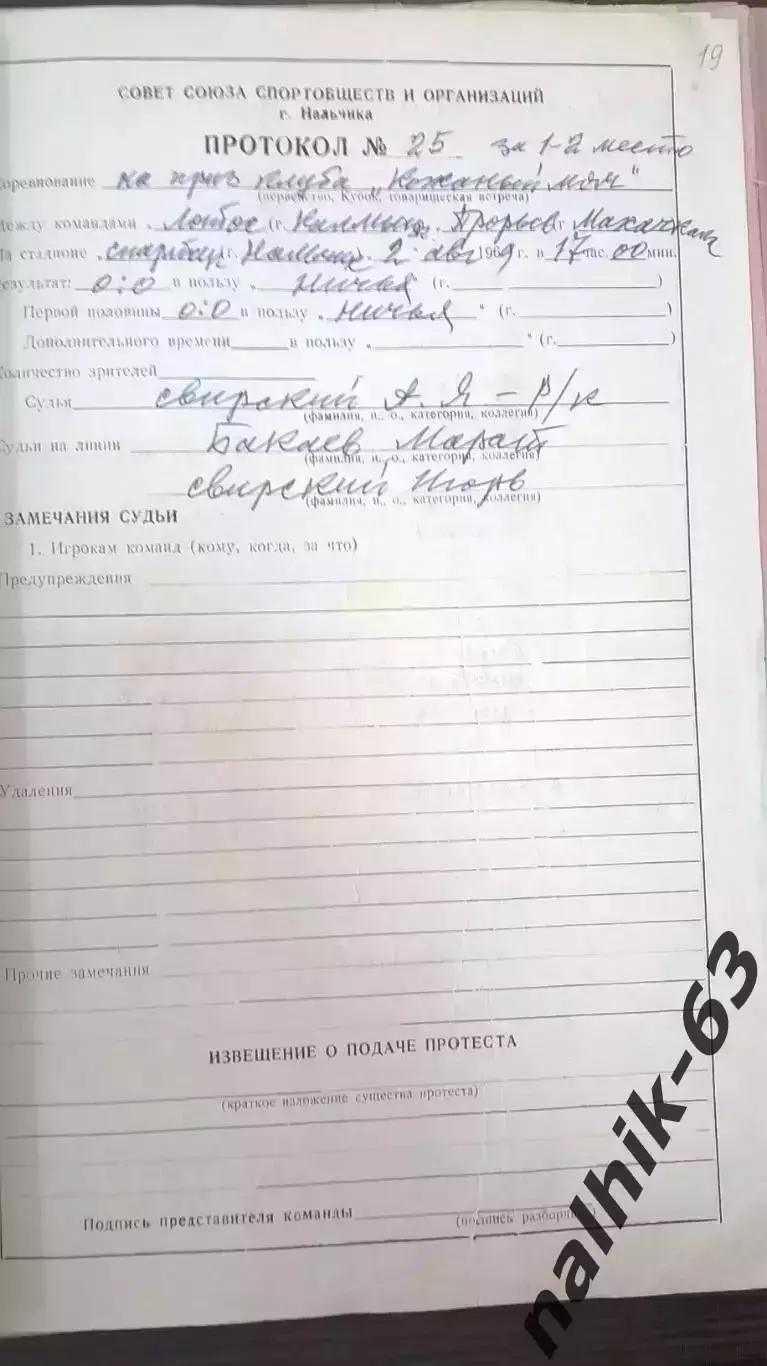 19
СОВЕТ СОЮЗА СПОРТОБЩЕСТВ И ОРГАНИЗАЦИЙ
г. Нальчика
ПРОТОКОЛ № 25 за 1-2 место
Соревнование на приз клуба „Кожаный мяч"
(первенство, Кубок, товарищеская встреча)
Между командами „ (г. Нальчик), Прорыв г Махачкала
На стадионе „Спартак г. Нальчик 2 авг 1969 г. в 17 час. 00 мин.
Результат: 0:0 в пользу „ ничья (г. )
Первой половины 0:0 в пользу „ ничья " (г. )
Дополнительного времени в пользу „ " (г. )
Количество зрителей
Судья Свирский А. Я – Р/к
(фамилия, и., о., категория, коллегия)
Судьи на линии Бакаев Марат
(фамилия, и., о., категория, коллегия)
Свирский Игорь
(фамилия, и., о., категория, коллегия)
ЗАМЕЧАНИЯ СУДЬИ
1. Игрокам команд (кому, когда, за что)
Предупреждения
Удаления
Прочие замечания
ИЗВЕЩЕНИЕ О ПОДАЧЕ ПРОТЕСТА
(краткое изложение существа протеста)
Подпись представителя команды
(подпись разборчиво)
nalhik-63